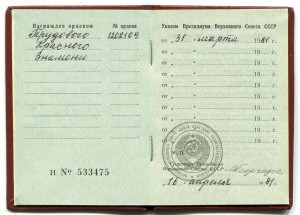 Награжден орденом № ордена
Трудового 1202109
Красного
Знамени
И № 533475
Указом Президиума Верховного Совета СССР
от „31“ марта 1981 г.
от „ “ 19 г.
от „ “ 19 г.
от „ “ 19 г.
от „ “ 19 г.
от „ “ 19 г.
от „ “ 19 г.
от „ “ 19 г.
М. П.
Секретарь Президиума
Верховного Совета СССР
„16“ апреля 1981 г.